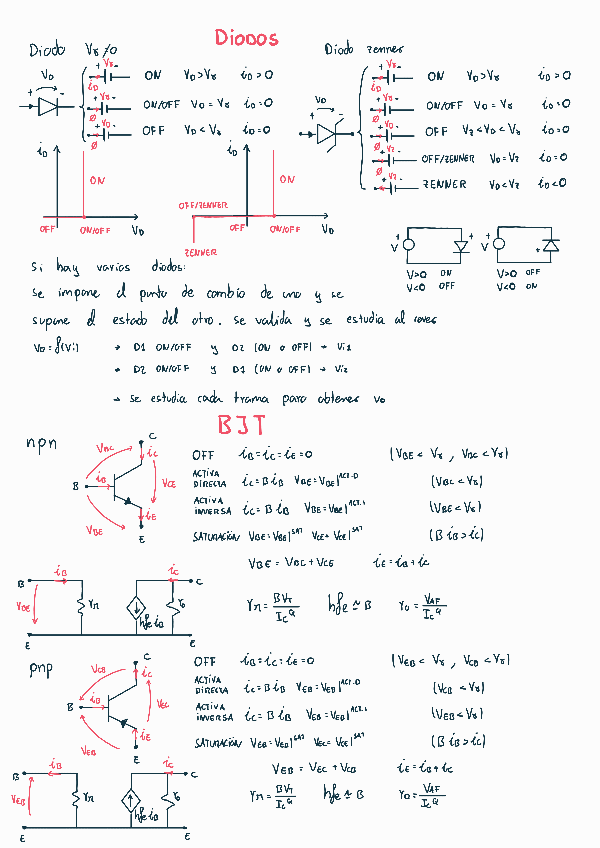 DIODOS
Diodo Vγ/0
VD
+ -
+ Vγ - iD ON VD>Vγ iD>0
+ Vγ - Ø ON/OFF VD=Vγ iD=0
+ VD - Ø OFF VD<Vγ iD=0
iD
ON
OFF ON/OFF VD
Diodo zenner
+ VD -
+ Vγ - iD ON VD>Vγ iD>0
+ Vγ - Ø ON/OFF VD=Vγ iD=0
+ VD - Ø OFF VZ<VD<Vγ iD=0
+ VZ - Ø OFF/ZENNER VD=VZ iD=0
+ VZ - ZENNER VD<VZ iD<0
iD
ON
OFF/ZENNER
OFF ON/OFF VD
ZENNER
+ V - +
V>0 ON
V<0 OFF
+ V - +
V>0 OFF
V<0 ON
Si hay varios diodos:
Se impone el punto de cambio de uno y se
supone el estado del otro. Se valida y se estudia al reves
Vo=f(Vi) → D1 ON/OFF y D2 (ON o OFF) → Vi1
→ D2 ON/OFF y D1 (ON o OFF) → Vi2
→ Se estudia cada trama para obtener Vo
BJT
npn
C
VBC iC
B iB VCE
VBE iE
E
OFF iB=iC=iE=0 (VBE < Vγ , VBC < Vγ)
ACTIVA DIRECTA iC=B iB VBE=VBE|ACT.D (VBC < Vγ)
ACTIVA INVERSA iC=B iB VBE=VBE|ACT.I (VBE < Vγ)
SATURACIÓN VBE=VBE|SAT VCE=VCE|SAT (B iB > iC)
VBE = VBC + VCE iE=iB+iC
B iB iC C
VBE rπ hfe iB ro
E E
rπ = BVT/ICQ hfe ≃ B ro = VAF/ICQ
pnp
C
VCB iC
B iB VEC
VEB iE
E
OFF iB=iC=iE=0 (VEB < Vγ , VCB < Vγ)
ACTIVA DIRECTA iC=B iB VEB=VEB|ACT.D (VCB < Vγ)
ACTIVA INVERSA iC=B iB VEB=VEB|ACT.I (VEB < Vγ)
SATURACIÓN VEB=VEB|SAT VEC=VEC|SAT (B iB > iC)
VEB = VEC + VCB iE=iB+iC
B iB iC C
VEB rπ hfe iB ro
E E
rπ = BVT/ICQ hfe ≃ B ro = VAF/ICQ